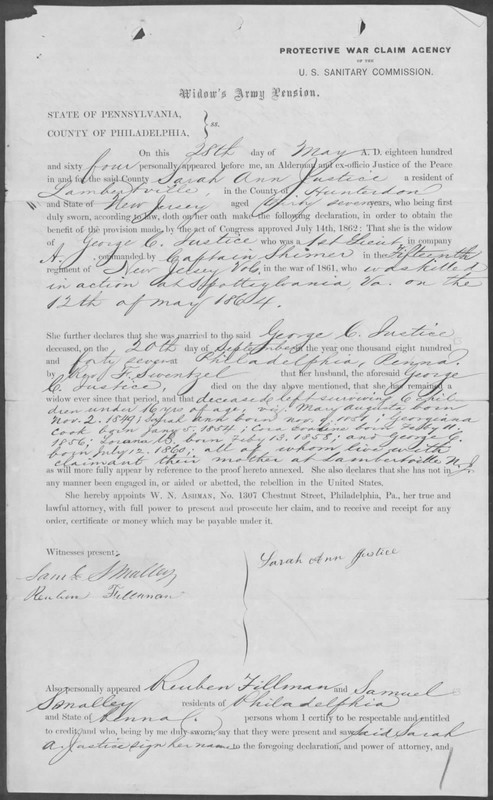 PROTECTIVE WAR CLAIM AGENCY
OF THE
U. S. SANITARY COMMISSION.
Widow's Army Pension.
STATE OF PENNSYLVANIA,
COUNTY OF PHILADELPHIA, } ss.
On this 28th day of May A. D. eighteen hundred
and sixty four personally appeared before me, an Alderman and ex-officio Justice of the Peace
in and for the said County Sarah Ann Justice a resident of
Lambertville, in the County of Hunterdon
and State of New Jersey aged thirty seven years, who being first
duly sworn, according to law, doth on her oath make the following declaration, in order to obtain the
benefit of the provision made by the act of Congress approved July 14th, 1862: That she is the widow
of George C. Justice who was a 1st Lieut. in company
A. commanded by Captain Shimer in the Fifteenth
regiment of New Jersey Vols. in the war of 1861, who was killed
in action at Spottsylvania, Va. on the
12th of may 1864.
She further declares that she was married to the said George C. Justice
deceased, on the 20th day of Septr. in the year one thousand eight hundred
and forty seven at Philadelphia, Penna.
by Rev. F. Swentzel that her husband, the aforesaid George
C. Justice, died on the day above mentioned, that she has remained a
widow ever since that period, and that deceased left surviving 6 chil-
dren under 16 yrs of age; viz: Mary Augusta born
Nov. 2. 1849; Sarah Ann born Nov. 9. 1852; Georgiana
Cook born Jany 5. 1854; Cora born Feby 11.
1856; B. born Feby 13. 1858; and George G.
born July 12. 1860; all of whom live with
claimant their mother at Lambertville, N. J.
as will more fully appear by reference to the proof hereto annexed. She also declares that she has not in
any manner been engaged in, or aided or abetted, the rebellion in the United States.
She hereby appoints W. N. ASHMAN, No. 1307 Chestnut Street, Philadelphia, Pa., her true and
lawful attorney, with full power to present and prosecute her claim, and to receive and receipt for any
order, certificate or money which may be payable under it.
Witnesses present:
Sarah Ann Justice
Saml. Smalley
Reuben Fillman
Also personally appeared Reuben Fillman and Samuel
Smalley residents of Philadelphia
and State of Penna. persons whom I certify to be respectable and entitled
to credit, and who, being by me duly sworn, say that they were present and saw said Sarah
A. Justice sign her name to the foregoing declaration, and power of attorney, and